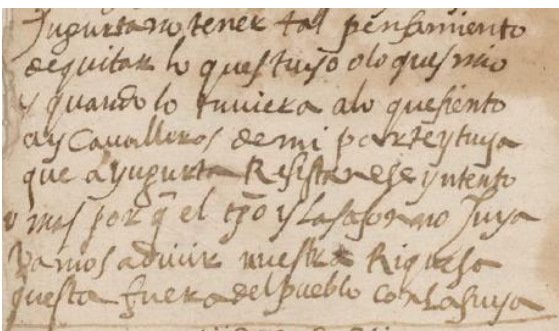 Jugurta no tener tal pensamiento
de quitar lo ques tuyo o lo ques mio
y quando lo tuviera a lo que siento
ay Cavalleros de mi parte y tuya
que a yugurta Resistan ese yntento
mas por q̃ el tp̃o y la sason no huya
Vamos a dividir nuestra Riquesa
questa fuera del pueblo con la suya